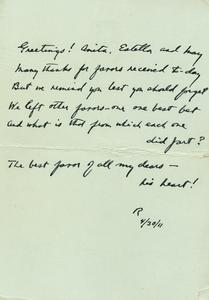 Greetings! Anita, Estelle and May
Many thanks for favors received to-day
But we remind you lest you should forget
We left other favors - our one best bet
And what is that from which each one
did part?
The best favor of all my dears -
his heart!
R
4/30/11